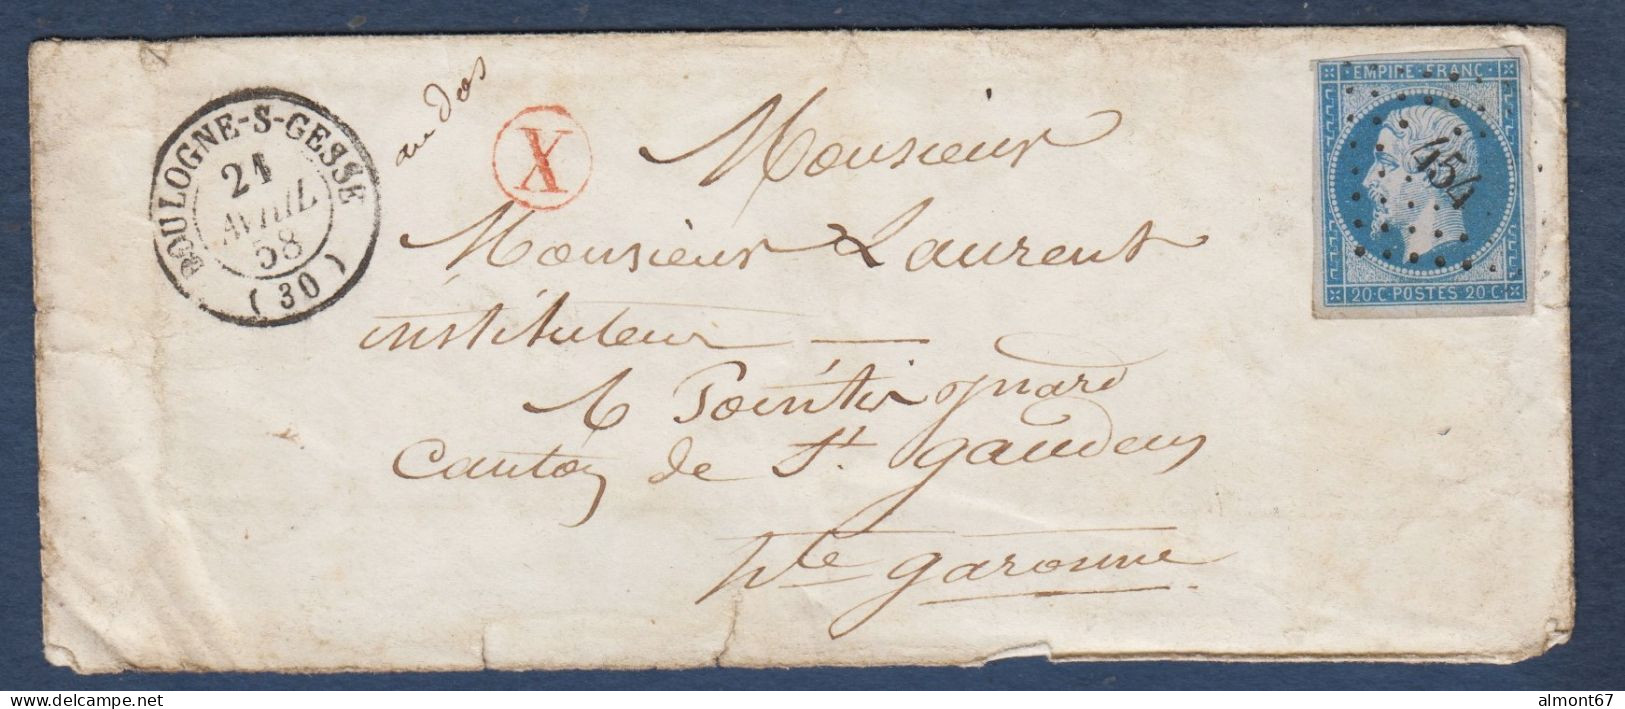 BOULOGNE-S-GESSE
21
AVRIL
58
(30)
au dos
X
EMPIRE FRANC
454
20·C·POSTES 20·C·
Monsieur
Monsieur Laurent
instituteur
à Pointis ynard
Canton de St. gaudens
hte garonne
almont67